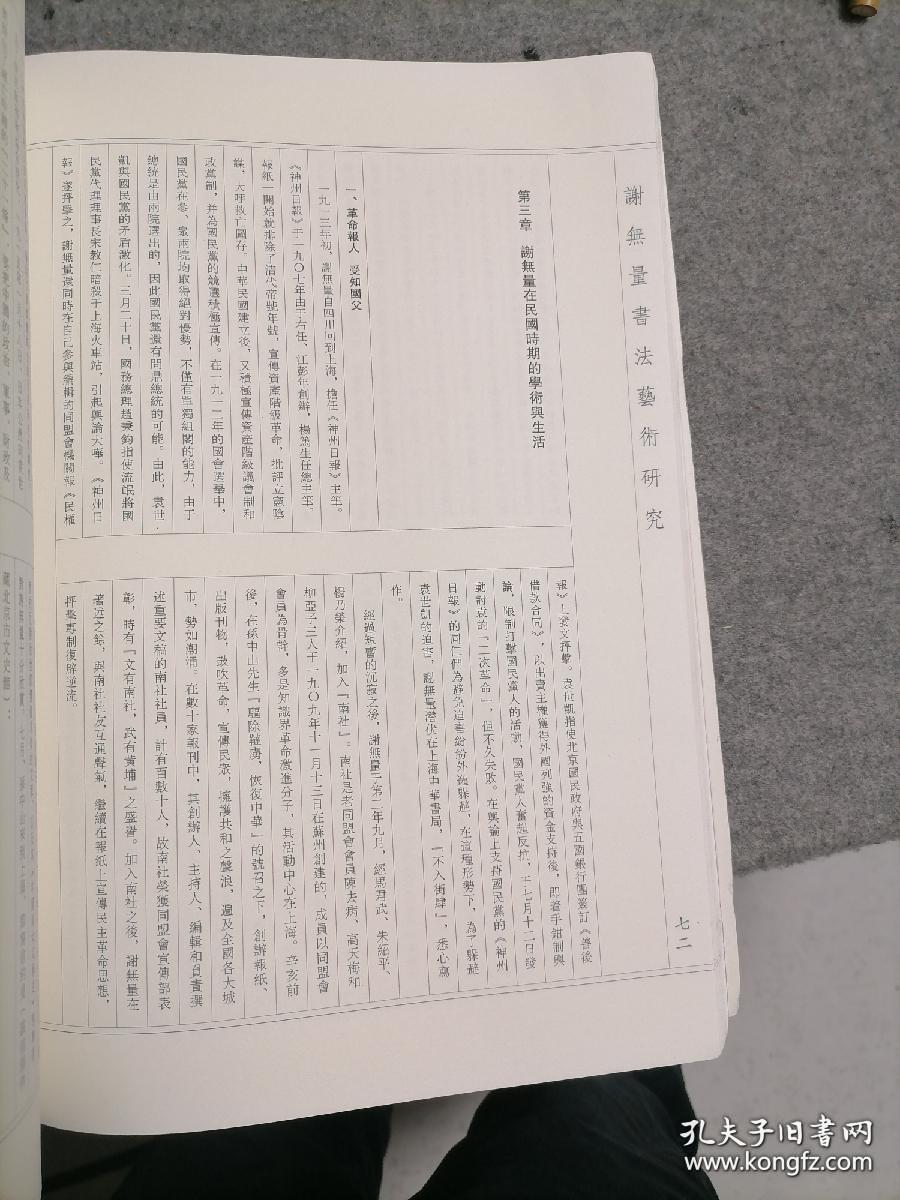 謝無量書法藝術研究
七二
第三章 謝無量在民國時期的學術與生活
一、革命報人 受知國父
一九一三年初，謝無量自四川回到上海，擔任《神州日報》主筆。
《神州日報》于一九〇七年由于右任、江彭年創辦，楊篤生任總主筆。
報紙一開始就排除了清代帝號年號，宣傳資產階級革命，批評立憲陰
謀，大呼救亡圖存。中華民國建立後，又積極宣傳資産階級議會制和
政黨制，并為國民黨的競選積極宣傳。在一九一二年的國會選舉中，
國民黨在參、衆兩院均取得絕對優勢，不僅有單獨組閣的能力，由于
總統是由兩院選出的，因此國民黨還有問鼎總統的可能。由此，袁世
凱與國民黨的矛盾激化。三月二十日，國務總理趙秉鈞指使流氓將國
民黨代理理事長宋教仁暗殺于上海火車站，引起輿論大嘩。《神州日
報》遂抨擊之，謝無量還同時在自己參與編輯的同盟會機關報《民權
報》上發文抨擊。袁世凱指使北京國民政府與五國銀行團簽訂《善後
借款合同》，以出賣主權獲得外國列強的資金支持後，即着手鉗制輿
論，限制打擊國民黨人的活動，國民黨人奮起反抗，于七月十二日發
動討袁的「二次革命」，但不久失敗。在輿論上支持國民黨的《神州
日報》的同仁們為避免迫害紛紛外逃躲避，在這種形勢下，為了躲避
袁世凱的迫害，謝無量潛伏在上海中華書局，「不入街肆」，悉心寫
作。
經過短暫的沉寂之後，謝無量于第二年九月，經馬君武、朱紹平、
楊乃榮介紹，加入『南社』。南社是老同盟會會員陳去病、高天梅和
柳亞子三人于一九〇九年十一月十三日在蘇州創建的，成員以同盟會
會員為骨幹，多是知識界革命激進分子，其活動中心在上海。辛亥前
後，在孫中山先生『驅除韃虜，恢復中華』的號召之下，創辦報紙、
出版刊物，鼓吹革命，宣傳民衆，擁護共和之聲浪，遍及全國各大城
市，勢如潮涌。在數十家報刊中，其創辦人、主持人、編輯和負責撰
述重要文稿的南社社員，計有百數十人，故南社榮獲同盟會宣傳部表
彰，時有『文有南社，武有黄埔』之盛譽。加入南社之後，謝無量在
著述之餘，與南社社友互通聲氣，繼續在報紙上宣傳民主革命思想，
抨擊專制復辟逆流。
藏北京市文史館）：
孔夫子旧书网
www.kongfz.com